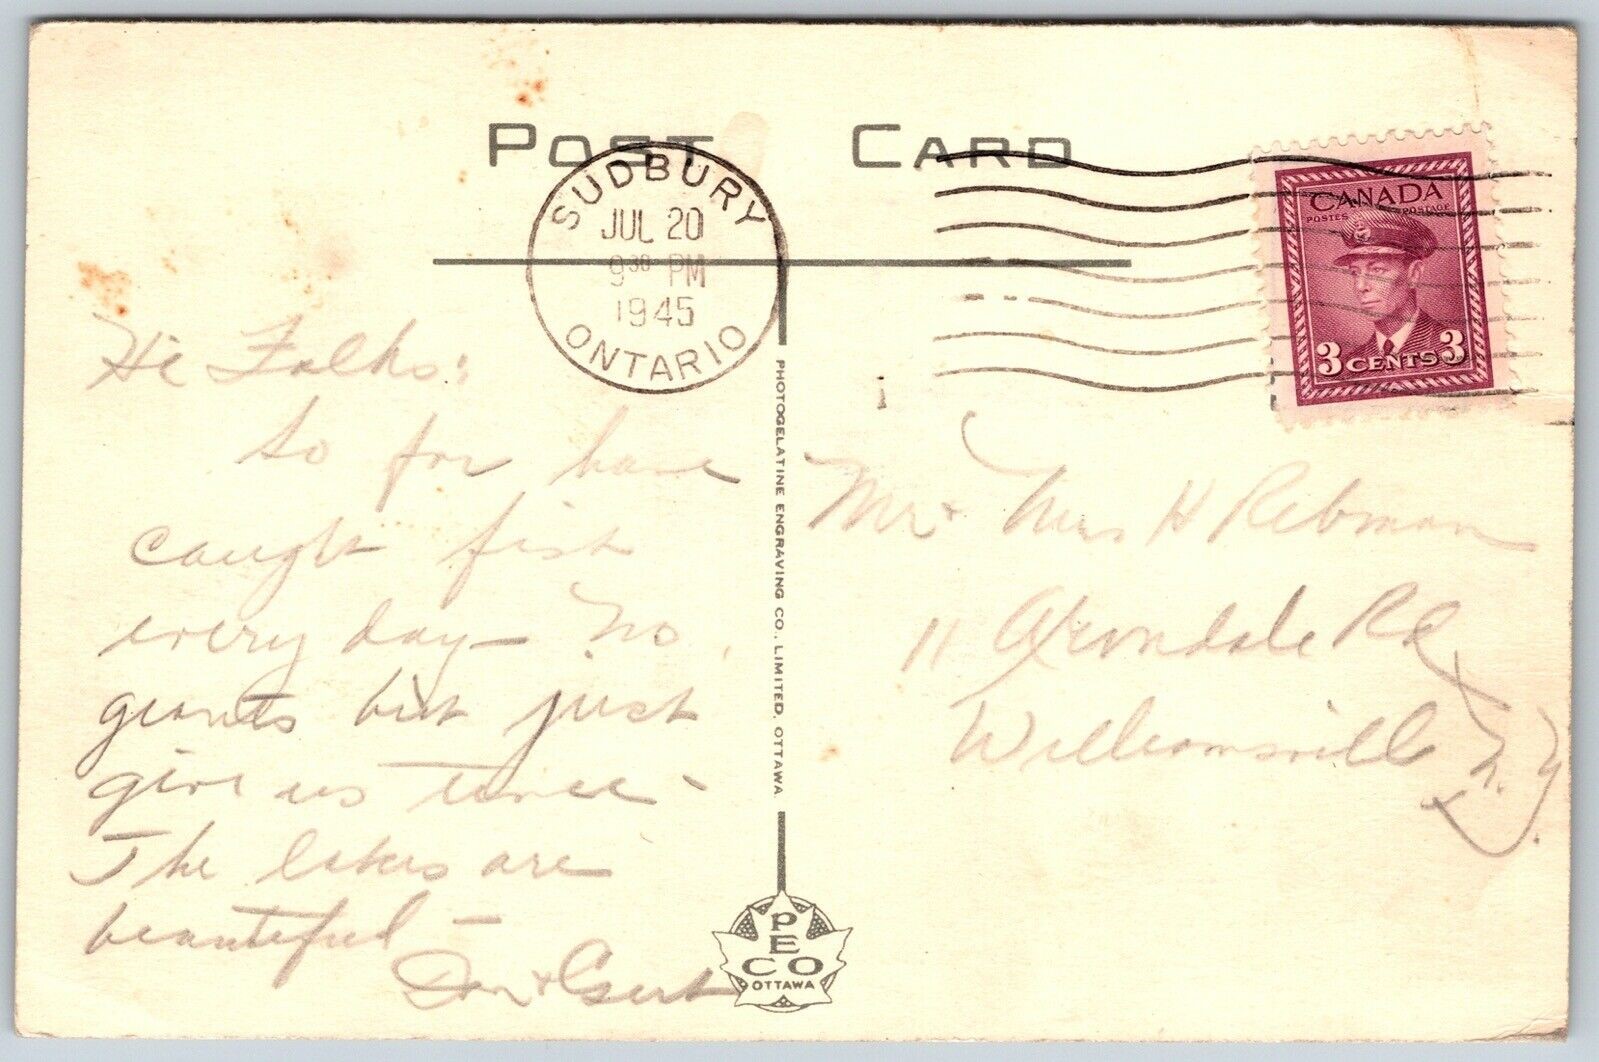 POST CARD
SUDBURY
JUL 20
9 30 PM
1945
ONTARIO
CANADA
POSTES POSTAGE
3 CENTS 3
Hi Folks:
So far have
caught fish
every day - No
giants but just
give us time -
The lakes are
beautiful -
Don + Gert
PHOTOGELATINE ENGRAVING CO., LIMITED, OTTAWA
PECO
OTTAWA
Mr + Mrs H Rebman
11 Avondale Rd
Williamsville
N.Y.